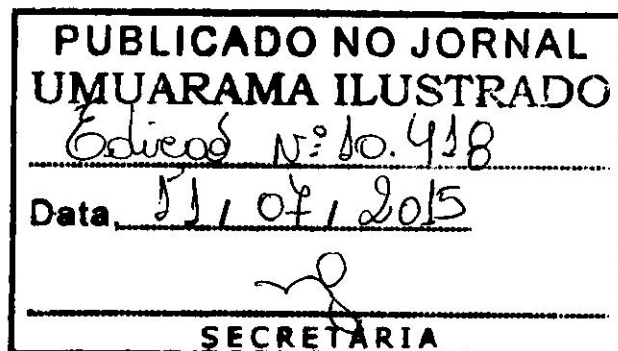 PUBLICADO NO JORNAL
UMUARAMA ILUSTRADO
Edição Nº 10.418
Data, 11 / 07 / 2015
SECRETÁRIA